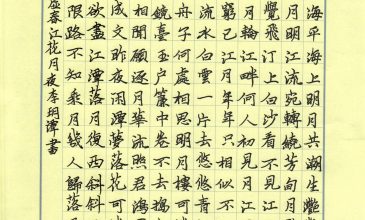 海平海上明月共潮生灩
月明江流宛轉繞芳甸月
覺飛汀上白沙看不見江
月輪江畔何人初見月
窮已江月年年只相似不
流水白雲一片去悠悠青
舟子何處相思明月樓可
鏡臺玉戶簾中卷不去搗
相聞願逐月華流照君鴻
成文昨夜閒潭夢落花可
欲盡江潭落月復西斜斜
限路不知乘月幾人歸落
虛春江花月夜 李潭書